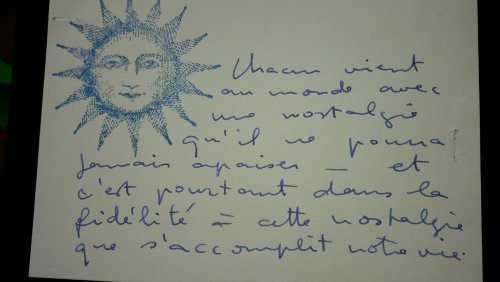 Chacun vient
au monde avec
une nostalgie
qu'il ne pourra
jamais apaiser — et
c'est pourtant dans la
fidélité à cette nostalgie
que s'accomplit notre vie.